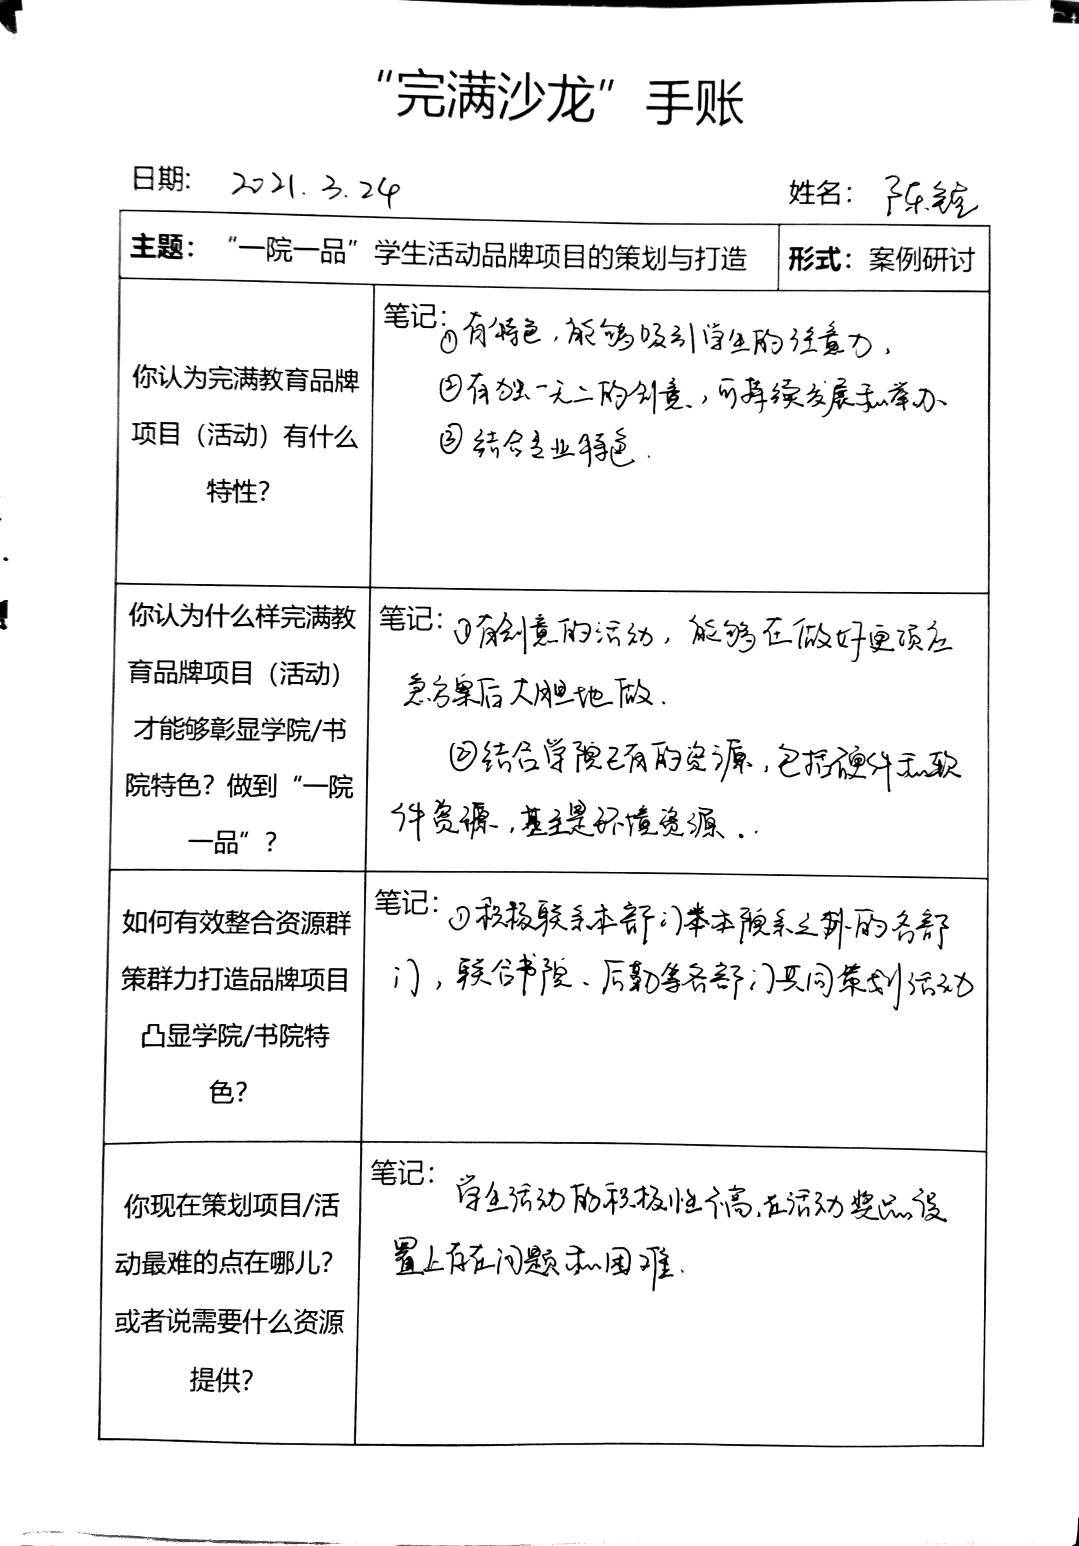 “完满沙龙”手账
日期: 2021.3.24 姓名: 陈
主题: “一院一品”学生活动品牌项目的策划与打造 形式: 案例研讨
你认为完满教育品牌
项目（活动）有什么
特性?
笔记: ①有特色，能够吸引学生的注意力，
②有独一无二的创意，可持续发展和举办、
③结合专业特色.
你认为什么样完满教
育品牌项目（活动）
才能够彰显学院/书
院特色? 做到“一院
一品”?
笔记: ①有创意的活动，能够在做好更项应
急方案后大胆地做.
②结合学院已有的资源，包括硬件和软
件资源，甚至是环境资源..
如何有效整合资源群
策群力打造品牌项目
凸显学院/书院特
色?
笔记: ①积极联系本部门举本院系之外的各部
门，联合书院、后勤等各部门共同策划活动
你现在策划项目/活
动最难的点在哪儿?
或者说需要什么资源
提供?
笔记: 学生活动的积极性不高,在活动奖品设
置上存在问题和困难.